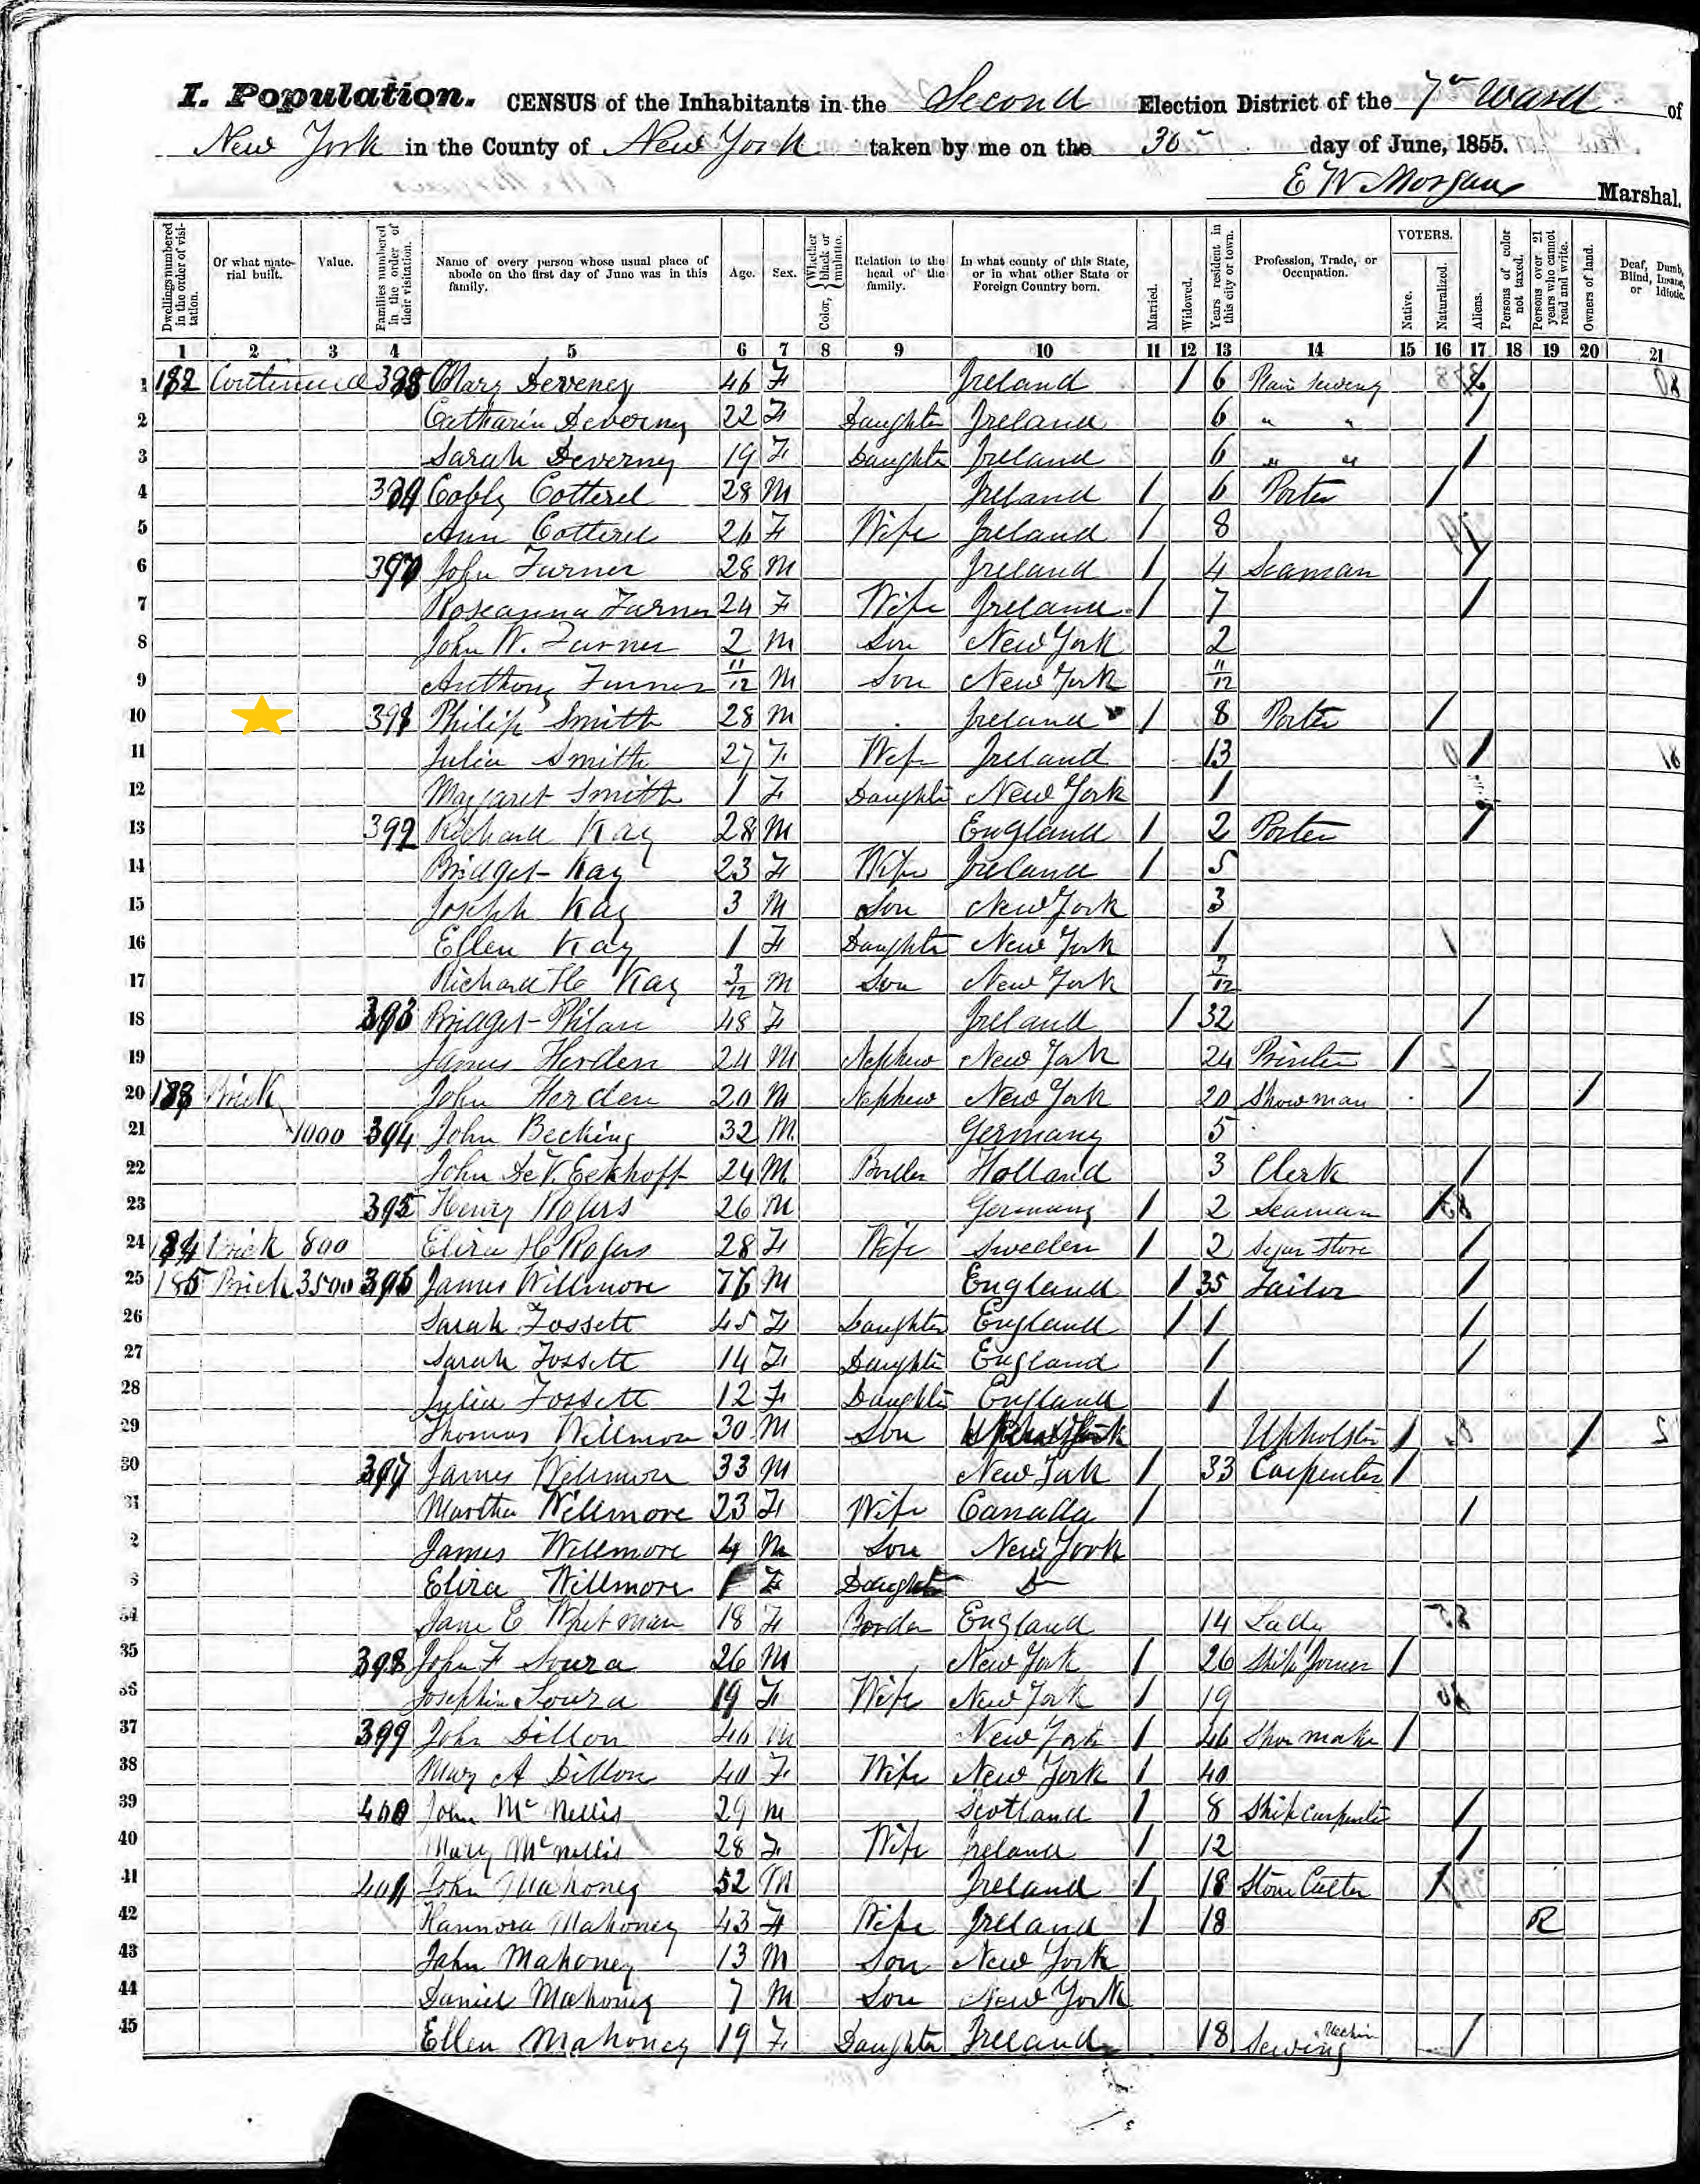 I. Population. CENSUS of the Inhabitants in the Second Election District of the 7th Ward of
New York in the County of New York taken by me on the 30 day of June, 1855.
E W Morgan Marshal.
Dwellings numbered in the order of visitation.
Of what material built.
Value.
Families numbered in the order of their visitation.
Name of every person whose usual place of abode on the first day of June was in this family.
Age.
Sex.
Color, Whether black or mulatto.
Relation to the head of the family.
In what county of this State, or in what other State or Foreign Country born.
Married.
Widowed.
Years resident in this city or town.
Profession, Trade, or Occupation.
VOTERS.
Native.
Naturalized.
Aliens.
Persons of color not taxed.
Persons over 21 years who cannot read and write.
Owners of land.
Deaf, Dumb, Blind, Insane, or Idiotic.
1 2 3 4 5 6 7 8 9 10 11 12 13 14 15 16 17 18 19 20 21
1 182 Continued Mary Deveney 46 F Ireland 1 6 Plain Sewing
2 Catharin Deverny 22 F Daughter Ireland 6 " " 1
3 Sarah Deverny 19 F Daughter Ireland 6 " " 1
4 Cotterel 28 M Ireland 1 6 Porter 1
5 Ann Cotterel 26 F Wife Ireland 1 8
6 John Turner 28 M Ireland 1 4 Seaman 1
7 Roseanna Turner 24 F Wife Ireland 1 7 1
8 John W. Turner 2 M Son New York 2
9 Anthony Turner 11/12 M Son New York 11/12
10 391 Philip Smith 28 M Ireland 1 8 Porter 1
11 Julia Smith 27 F Wife Ireland 13 1
12 Margaret Smith 1 F Daughter New York 1
13 392 Richard Kay 28 M England 1 2 Porter 1
14 Bridget Kay 23 F Wife Ireland 1 5
15 Joseph Kay 3 M Son New York 3
16 Ellen Kay 1 F Daughter New York 1
17 Richard H Kay 3/12 M Son New York 3/12
18 393 Bridget Philan 48 F Ireland 1 32 1
19 James Herden 24 M Nephew New York 24 Printer 1
20 183 Brick John Herden 20 M Nephew New York 20 Showman 1 1
21 1000 394 John Becking 32 M Germany 5
22 John De V. Eekhoff 24 M Holland 3 Clerk 1
23 395 Henry Rogers 26 M Germany 1 2 Seaman 1
24 184 Brick 800 Eliza H Rogers 28 F Wife Sweden 1 2 Segar Store 1
25 185 Brick 3500 396 James Willmore 76 M England 1 35 Tailor 1
26 Sarah Fossett 45 F Daughter England 1 1 1
27 Sarah Fossett 14 F Daughter England 1 1
28 Julia Fossett 12 F Daughter England 1
29 Thomas Willmore 30 M Son Upholster 1 1
30 397 James Willmore 33 M New York 1 33 Carpenter 1
31 Martha Willmore 23 F Wife Canada 1 1
2 James Willmore 4 M Son New York
3 Eliza Willmore 1 F Daughter Do
34 Jane E Whetman 18 F Border England 14 Lady
35 398 John F Soura 26 M New York 1 26 Ship Joiner 1
36 Josephine Soura 19 F Wife New York 1 19
37 399 John Dillon 46 M New York 1 46 Shoe maker 1
38 Mary A Dillon 40 F Wife New York 1 40
39 400 John McNellis 29 M Scotland 1 8 Ship Carpenter 1
40 Mary McNellis 28 F Wife Ireland 1 12 1
41 401 John Mahoney 52 M Ireland 1 18 Stone Cutter 1
42 Hannora Mahoney 43 F Wife Ireland 1 18 R
43 John Mahoney 13 M Son New York
44 Daniel Mahoney 7 M Son New York
45 Ellen Mahoney 19 F Daughter Ireland 18 Sewing Machine 1